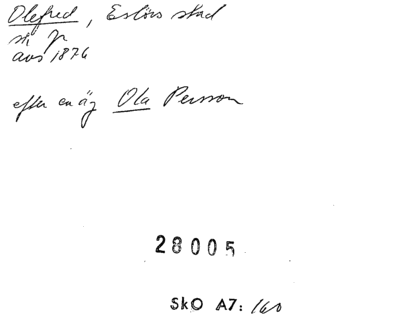 Olefred, Eslövs stad
sk jr
avs 1876
efter en äg Ola Persson
28005
SkO A7: 160